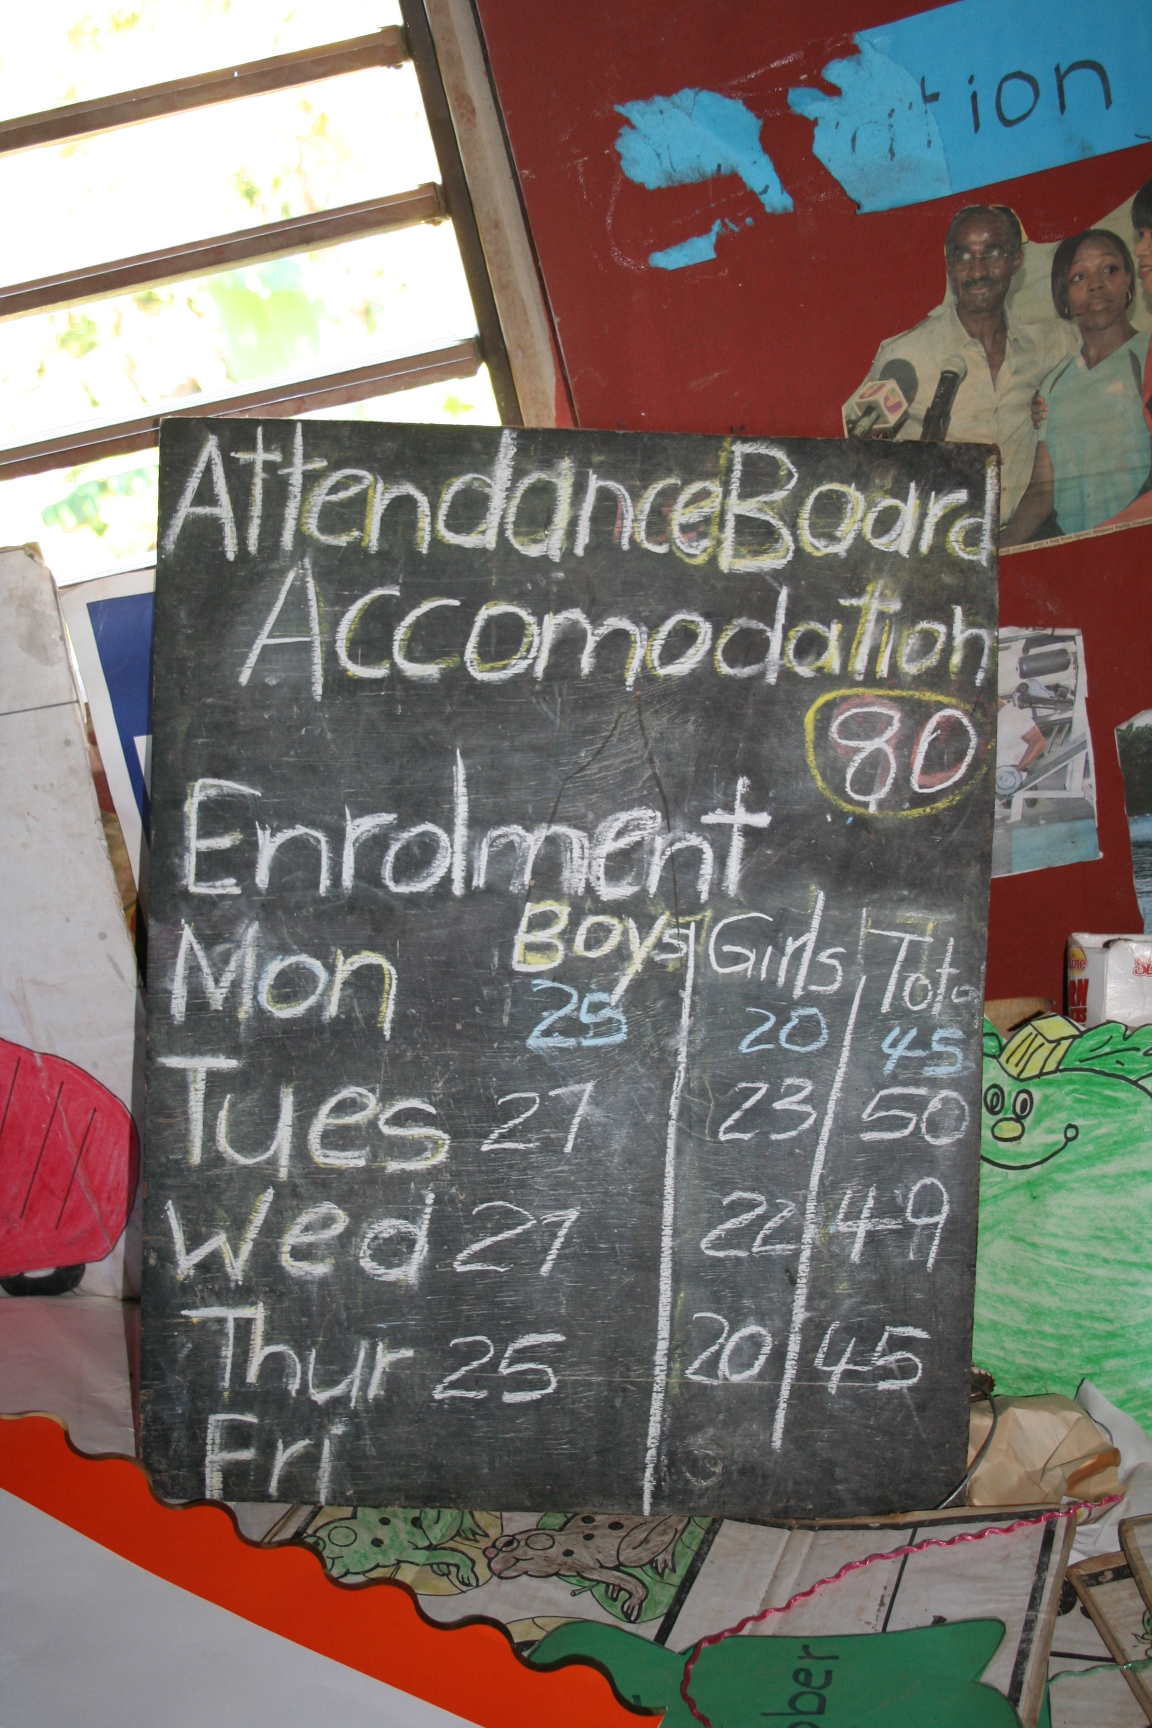 tion
Attendance Board
Accomodation
80
Enrolment
Boys Girls Tota
Mon 25 20 45
Tues 27 23 50
Wed 27 22 49
Thur 25 20 45
Fri
ober